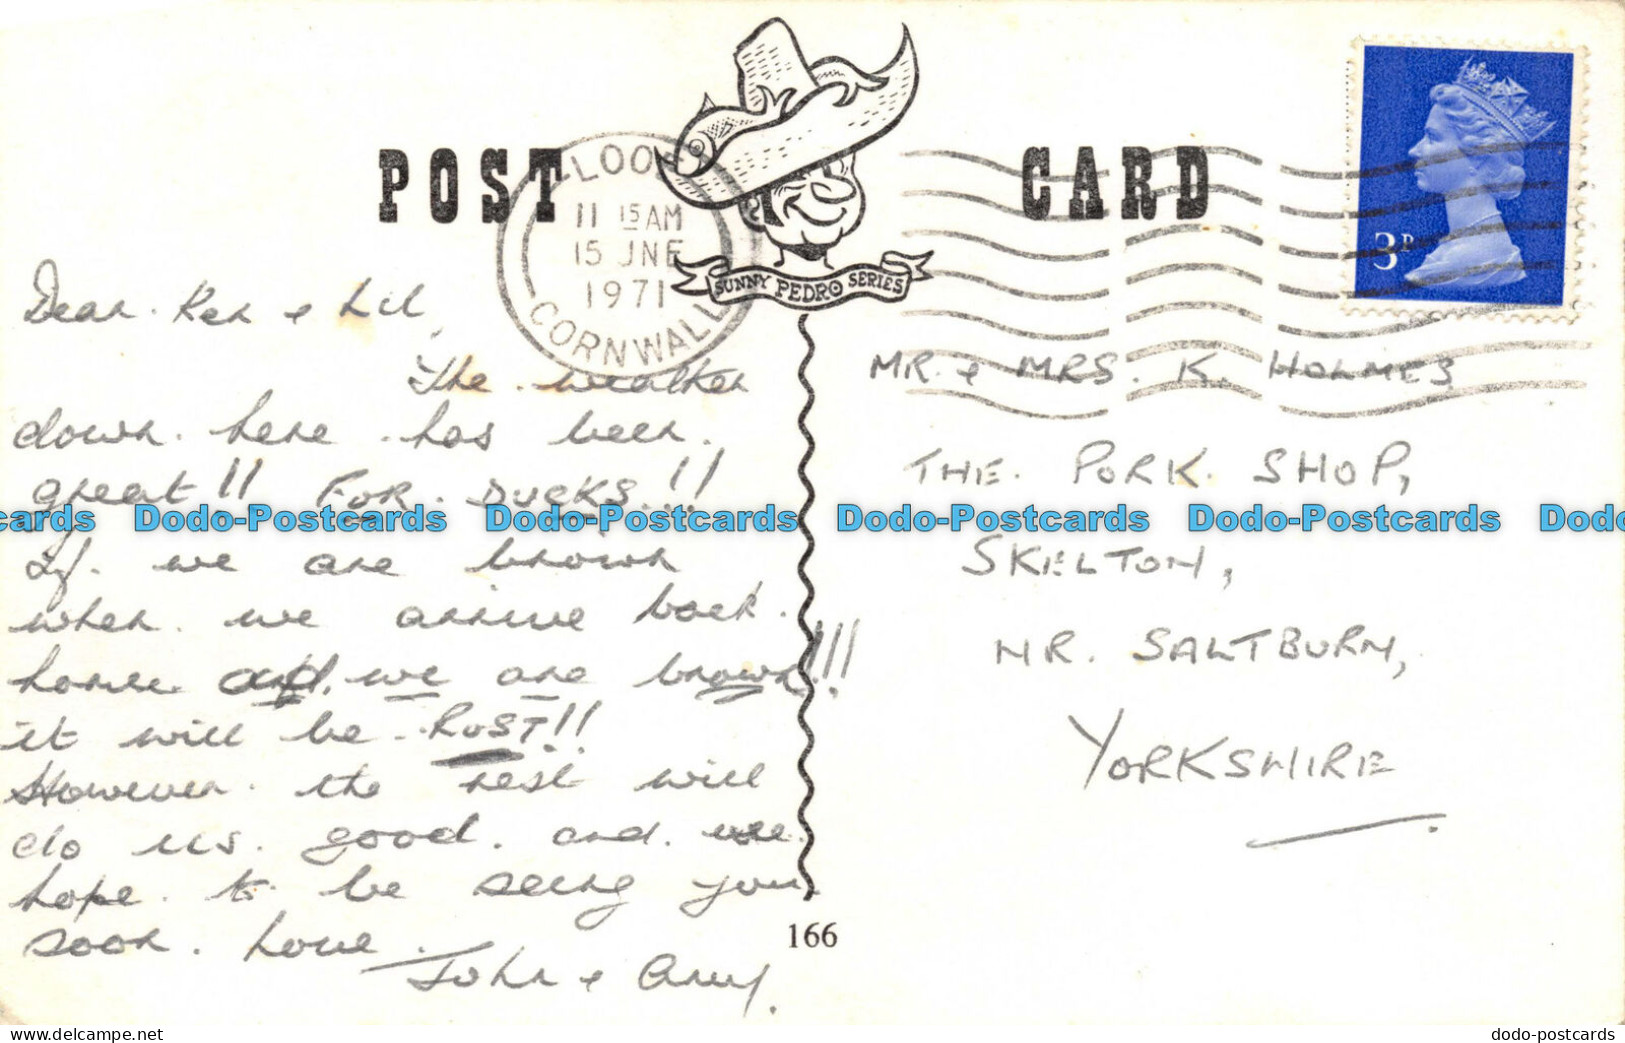 POST CARD
LOOE
11 15 AM
15 JNE
1971
CORNWALL
SUNNY PEDRO SERIES
3P
Dear Ken & Lil,
The weather
down here has been
great!! FOR DUCKS!!
If we are brown
when we arrive back
home and we are brown!!!
it will be RUST!!
However the rest will
do us good and we
hope to be seeing you
soon. love
John & Amy.
166
MR. & MRS. K. HOLMES
THE PORK SHOP,
SKELTON,
NR. SALTBURN,
YORKSHIRE
cards Dodo-Postcards Dodo-Postcards Dodo-Postcards Dodo-Postcards Dodo
www.dodo-postcards.delcampe.net dodo-postcards